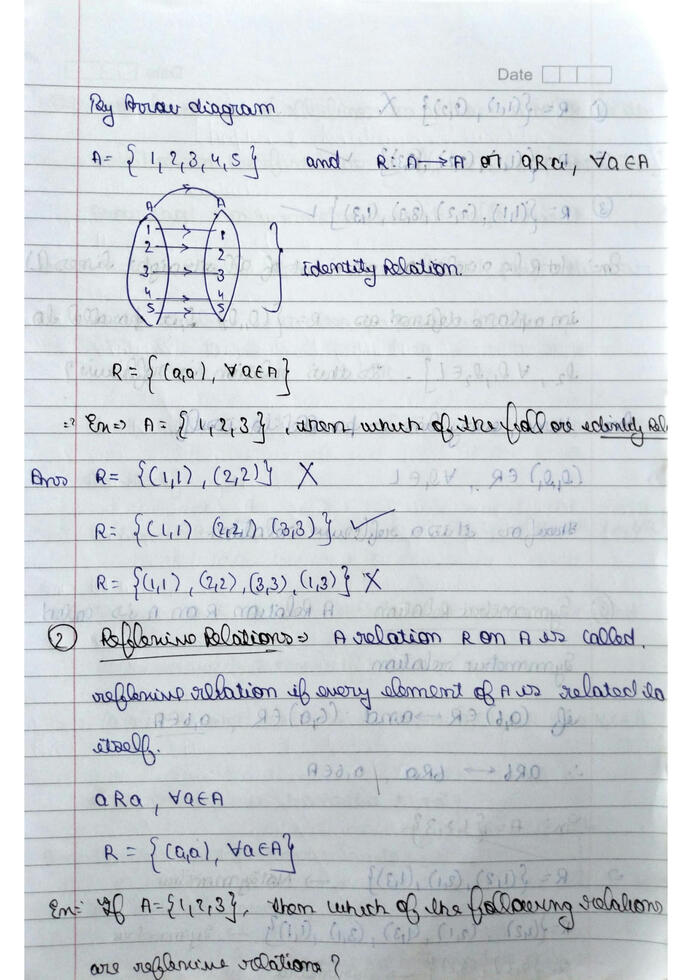 Date
By Arrow diagram
A= { 1,2,3,4,5} and R: A→A or aRa, ∀a∈A
A A
1 1
2 2
3 3
4 4
5 5
identity Relation.
R = {(a,a), ∀a∈A}
Ex=> A= {1,2,3}, then which of the foll are identity Rel
Ans R= {(1,1), (2,2)} X
R= {(1,1) (2,2) (3,3)} ✓
R= {(1,1), (2,2), (3,3), (1,3)} X
② Reflexive Relations=> A relation R on A is called.
reflexive relation if every element of A is related to
itself.
aRa, ∀a∈A
R = {(a,a), ∀a∈A}
Ex= If A={1,2,3}, then which of the following relations
are reflexive relations?